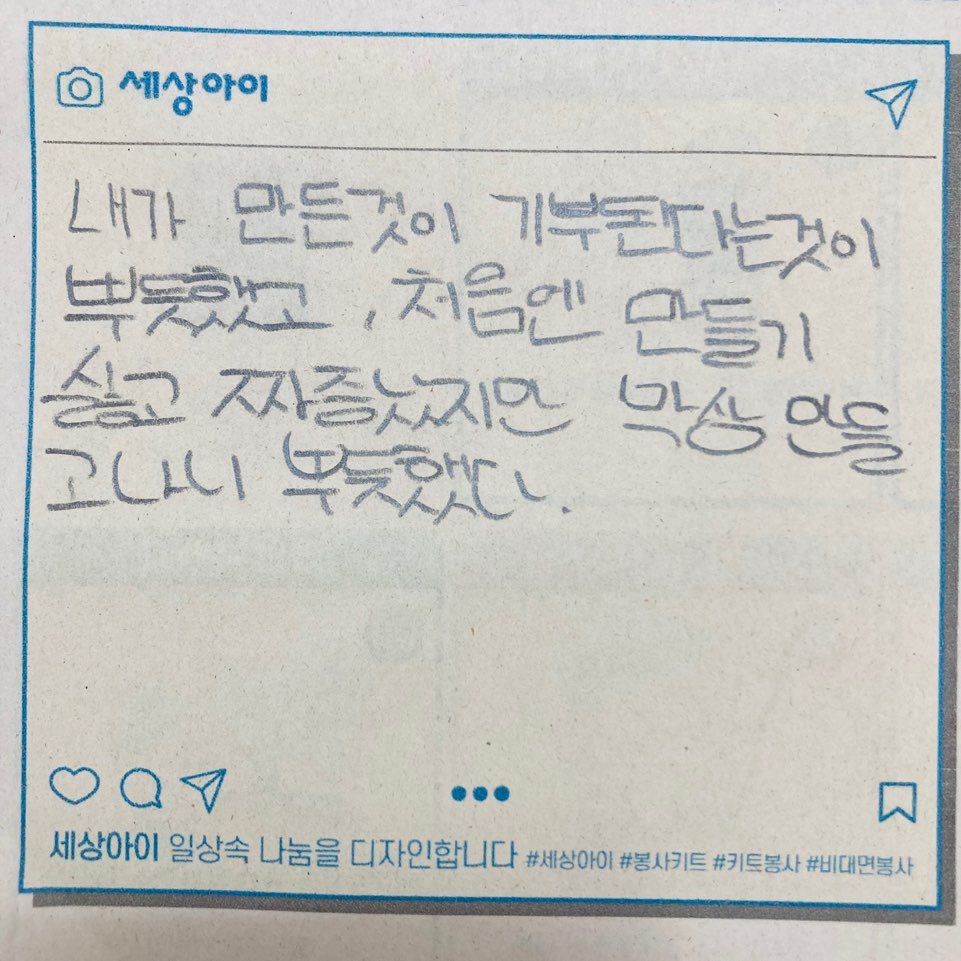 세상아이
내가 만든것이 기부된다는것이
뿌듯했고, 처음엔 만들기
싫고 짜증났지만 막상 만들
고나니 뿌듯했다.
세상아이 일상속 나눔을 디자인합니다 #세상아이 #봉사키트 #키트봉사 #비대면봉사